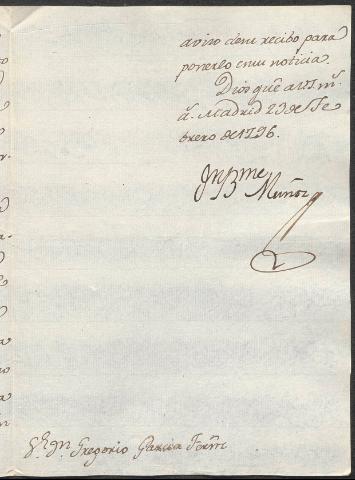 aviso de su recibo para
ponerlo en su noticia.
Dios gūe a V.S. m.s
a.s Madrid 29 de Fe
brero de 1796.
Bme
Muñoz
S.or D.n Gregorio Garcia Fern.z